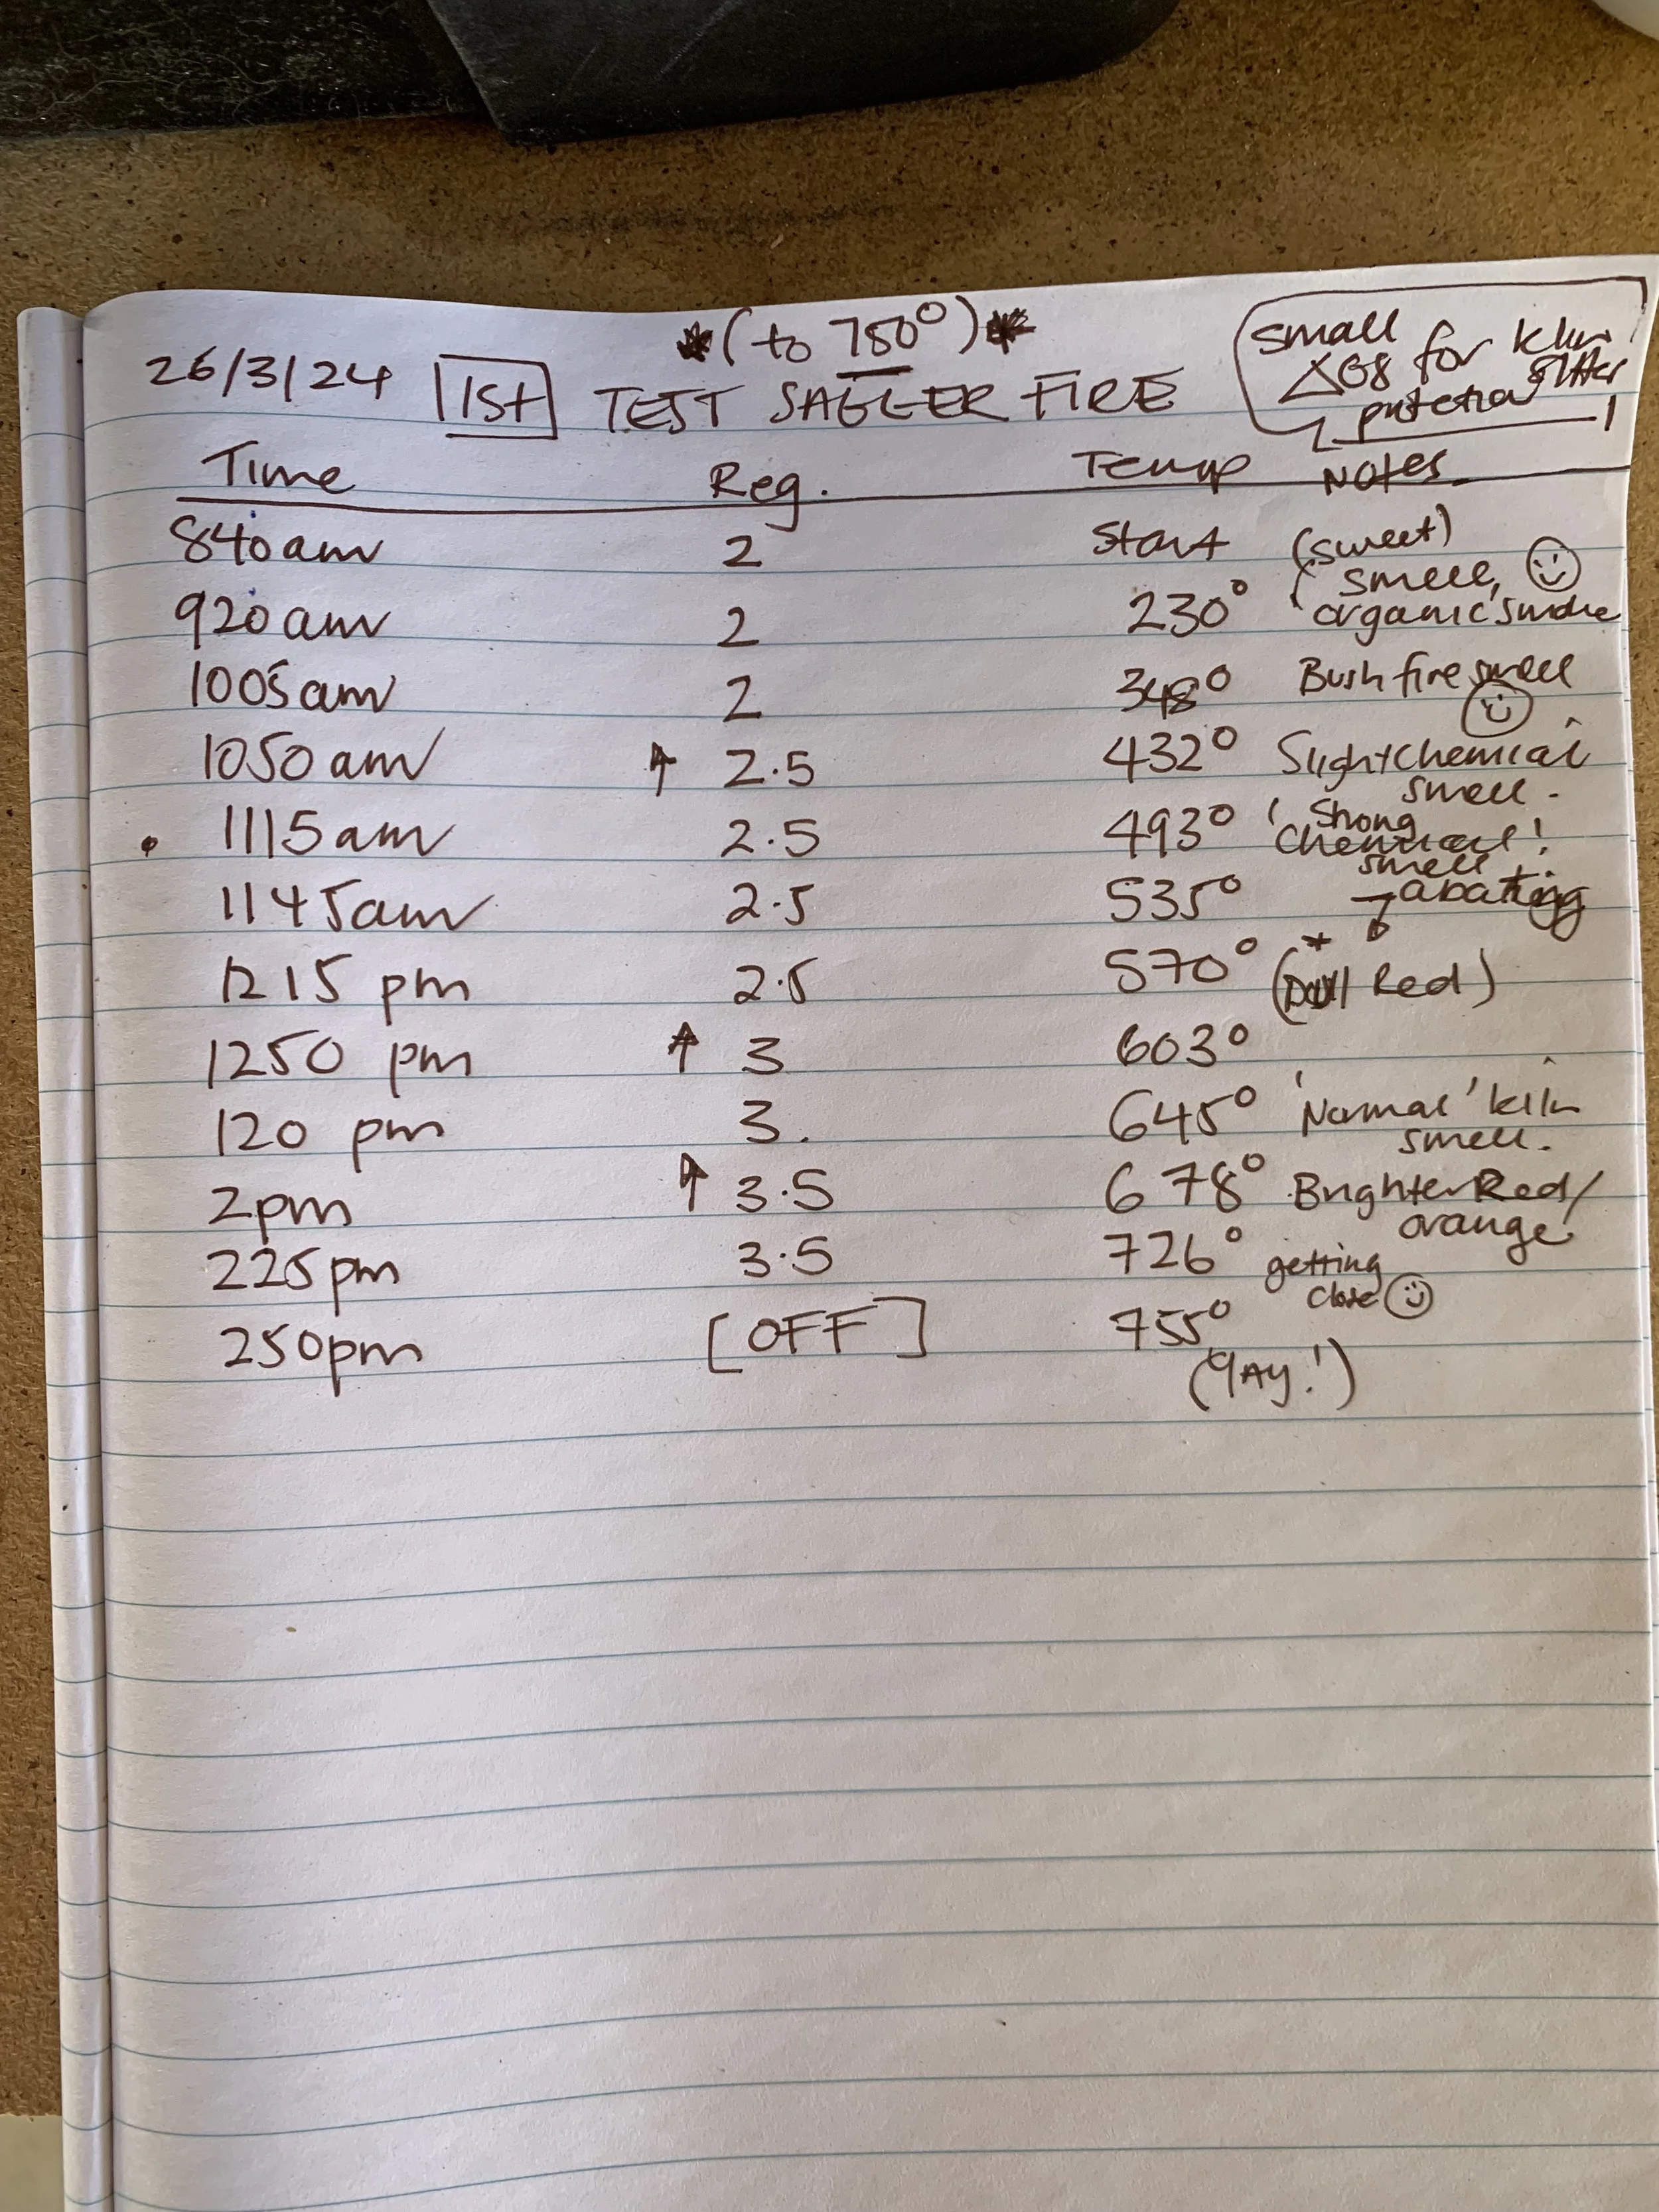 *(to 750°)*
26/3/24 1st TEST SAGGER FIRE
small
△08 for kiln
sitter
Time Reg. Temp Notes.
840am 2 Start (sweet)
smell,
920am 2 230° organic smoke
1005am 2 348° Bush fire smell
1050am ↑ 2.5 432° Slight chemical
smell.
1115am 2.5 493° Strong
chemical!
smell
1145am 2.5 535° → abating
1215 pm 2.5 570° *(Dull Red)
1250 pm ↑ 3 603°
120 pm 3. 645° 'Normal' kiln
smell.
2pm ↑ 3.5 678° Brighter Red/
orange
225pm 3.5 726° getting
close
250pm [OFF] 755°
(YAY!)